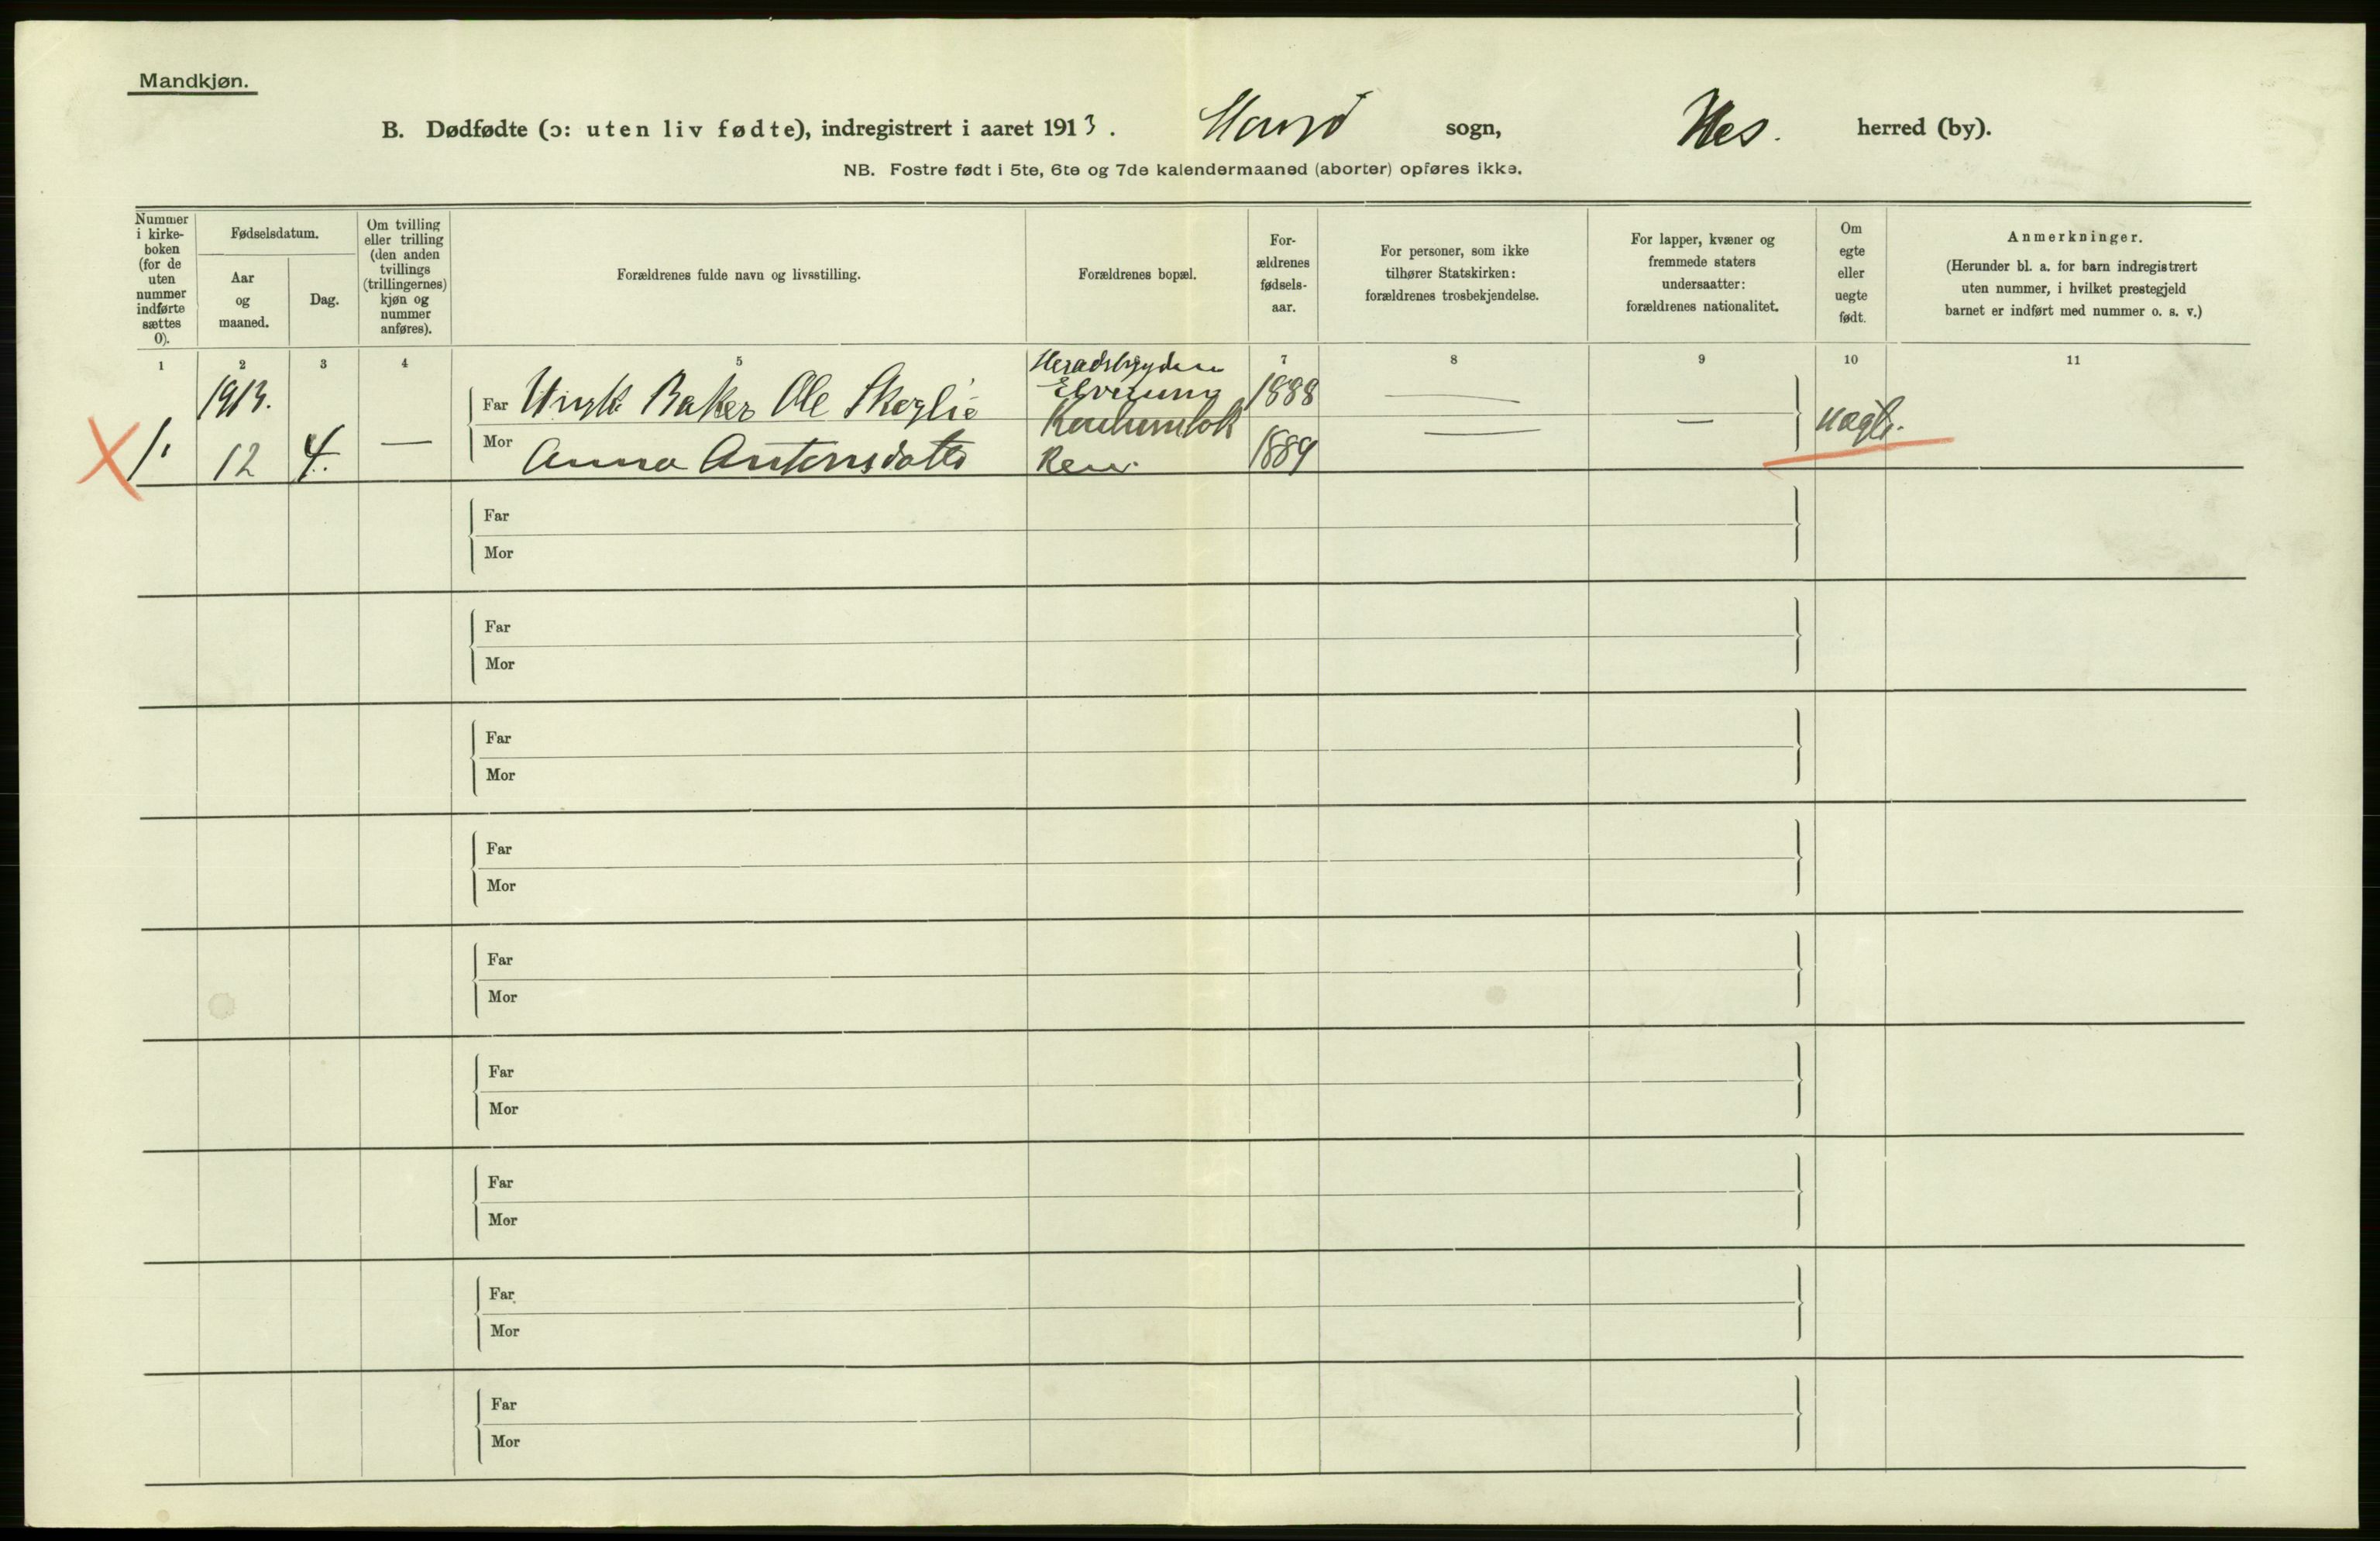 Mandkjøn.
B. Dødfødte (ɔ: uten liv fødte), indregistrert i aaret 1913. sogn, Nes. herred (by).
NB. Fostre født i 5te, 6te og 7de kalendermaaned (aborter) opføres ikke.
Nummer
i kirke-
boken
(for de
uten
nummer
indførte
sættes
0).
Fødselsdatum.
Aar
og
maaned.
Dag.
Om tvilling
eller trilling
(den anden
tvillings
(trillingernes)
kjøn og
nummer
anføres).
Forældrenes fulde navn og livsstilling.
Forældrenes bopæl.
For-
ældrenes
fødsels-
aar.
For personer, som ikke
tilhører Statskirken:
forældrenes trosbekjendelse.
For lapper, kvæner og
fremmede staters
undersaatter:
forældrenes nationalitet.
Om
egte
eller
uegte
født.
Anmerkninger.
(Herunder bl. a. for barn indregistrert
uten nummer, i hvilket prestegjeld
barnet er indført med nummer o. s. v.)
1 2 3 4 5 7 8 9 10 11
1913.
1. 12 4. —
Far Ungk. Baker Ole Skoglie
Heradsbygden
Elverum
1888 — —
Mor Anna Antonsdatter
1889 —
uegte.
Far
Mor
Far
Mor
Far
Mor
Far
Mor
Far
Mor
Far
Mor
Far
Mor
Far
Mor
Far
Mor